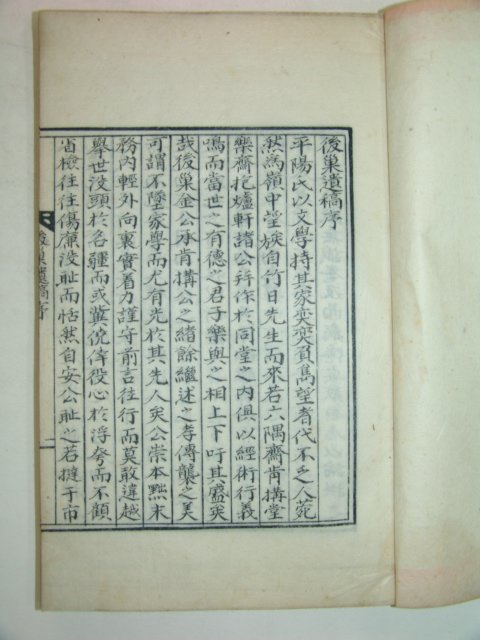 後巢遺稿序
平陽氏以文學持其家奕奕負雋望者代不乏人菀
然為嶺中望族自竹日先生而來若六隅齋肯搆堂
樂齋把爐軒諸公幷作於同堂之內俱以經術行義
鳴而當世之有德之君子樂與之相上下吁其盛矣
哉後巢金公承肯搆公之緖餘繼述之孝傳襲之美
可謂不墜家學而尤有光於其先人矣公崇本黜末
務內輕外向裏實着力謹守前言往行而莫敢違越
擧世沒頭於名疆而或冀倪倖役心於浮夸而不顧
省檢往往傷廉沒耻而恬然自安公耻之若撻于市
後巢遺稿序
一